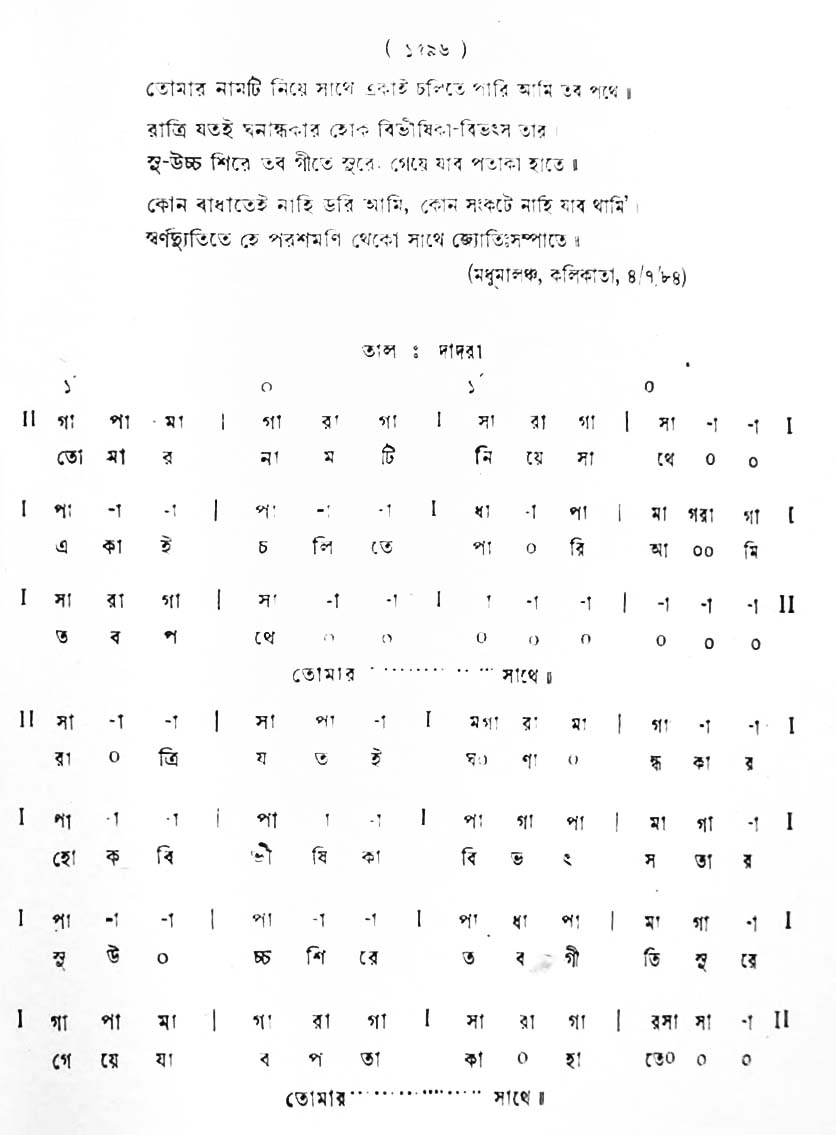 ( ১৭৯৬ )
তোমার নামটি নিয়ে সাথে একাই চলিতে পারি আমি তব পথে॥
রাত্রি যতই ঘনান্ধকার হোক বিভীষিকা-বিভৎস তার।
সু-উচ্চ শিরে তব গীতে সুরে, গেয়ে যাব পতাকা হাতে॥
কোন বাধাতেই নাহি ডরি আমি, কোন সংকটে নাহি যাব থামি'।
স্বর্ণদ্যুতিতে হে পরশমণি থেকো সাথে জ্যোতিঃসম্পাতে॥
(মধুমালঞ্চ, কলিকাতা, ৪/৭/৮৪)
তাল : দাদরা
১´ ০ ১´ ০
II গা পা মা | গা রা গা I সা রা গা | সা -া -া I
তো মা র না ম টি নি য়ে সা থে ০ ০
I পা -া -া | পা -া -া I ধা -া পা | মা গরা গা I
এ কা ই চ লি তে পা ০ রি আ ০০ মি
I সা রা গা | সা -া -া I া -া -া | -া -া -া II
ত ব প থে ০ ০ ০ ০ ০ ০ ০ ০
তোমার ............... সাথে॥
II সা -া -া | সা পা -া I মগা রা মা | গা -া -া I
রা ০ ত্রি য ত ই ঘ০ ণা ০ ন্ধ কা র
I পা -া -া | পা া -া I পা গা পা | মা গা -া I
হো ক বি ভী ষি কা বি ভ ৎ স তা র
I পা -া -া | পা -া -া I পা ধা পা | মা গা -া I
সু উ ০ চ্চ শি রে ত ব গী তি সু রে
I গা পা মা | গা রা গা I সা রা গা | রসা সা -া II
গে য়ে যা ব প তা কা ০ হা তে০ ০ ০
তোমার .................. সাথে॥